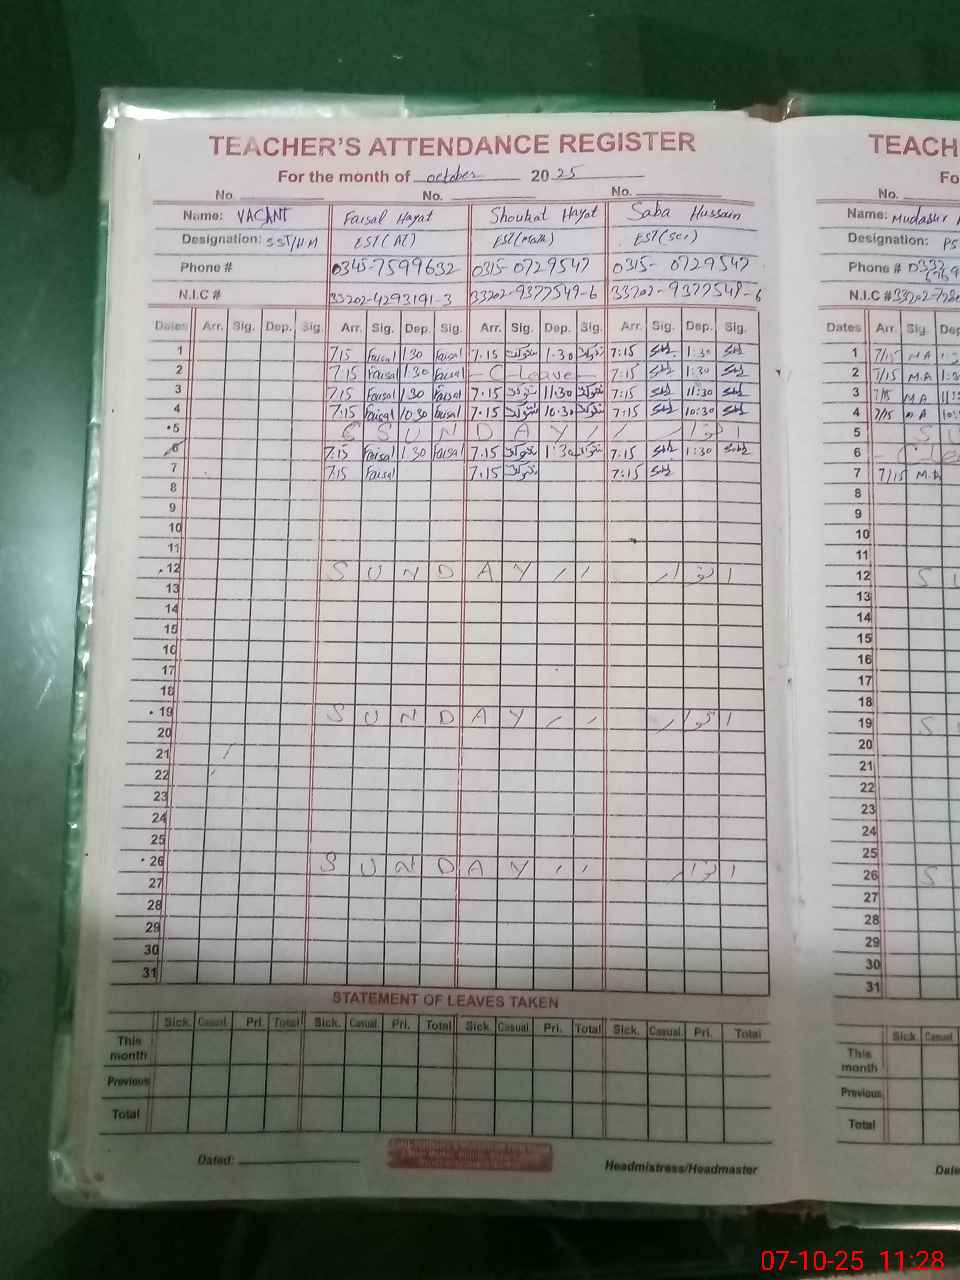 TEACHER'S ATTENDANCE REGISTER
For the month of october 2025
No. No. No.
Name: VACANT Faisal Hayat Shoukat Hayat Saba Hussain
Designation: SST/HM EST(AT) EST(Math) EST(Sci)
Phone # 0345-7599632 0315-0729547 0315-0729547
N.I.C # 33202-4293191-3 33202-9377549-6 33202-9377549-6
Dates Arr. Sig. Dep. Sig. Arr. Sig. Dep. Sig. Arr. Sig. Dep. Sig. Arr. Sig. Dep. Sig.
1 7.15 Faisal 1.30 Faisal 7.15 شوکت 1.30 شوکت 7:15 1:30
2 7.15 Faisal 1.30 Faisal - C-leave - 7:15 1:30
3 7.15 Faisal 1.30 Faisal 7.15 شوکت 11.30 شوکت 7:15 11:30
4 7.15 Faisal 10.30 Faisal 7.15 شوکت 10.30 شوکت 7:15 10:30
5 SUNDAY // اتوار
6 7.15 Faisal 1.30 Faisal 7.15 شوکت 1:30 شوکت 7:15 1:30
7 7.15 Faisal 7.15 شوکت 7:15
8
9
10
11
12 SUNDAY // اتوار
13
14
15
16
17
18
19 SUNDAY // اتوار
20
21
22
23
24
25
26 SUNDAY // اتوار
27
28
29
30
31
STATEMENT OF LEAVES TAKEN
Sick. Casual. Pri. Total Sick. Casual. Pri. Total Sick. Casual. Pri. Total Sick. Casual. Pri. Total
This month
Previous
Total
Dated: Headmistress/Headmaster
TEACH
Fo
No.
Name: Mudassir
Designation: PS
Phone # 0332
N.I.C # 33202-728
Dates Arr. Sig. Dep
1 7/15 M.A
2 7/15 M.A 1:3
3 7/15 M.A 11:
4 7/15 M.A 10:
5 SU
6 - C-lea
7 7/15 M.A
8
9
10
11
12 SU
13
14
15
16
17
18
19 S
20
21
22
23
24
25
26 S
27
28
29
30
31
Sick. Casual
This month
Previous
Total
Date
07-10-25 11:28